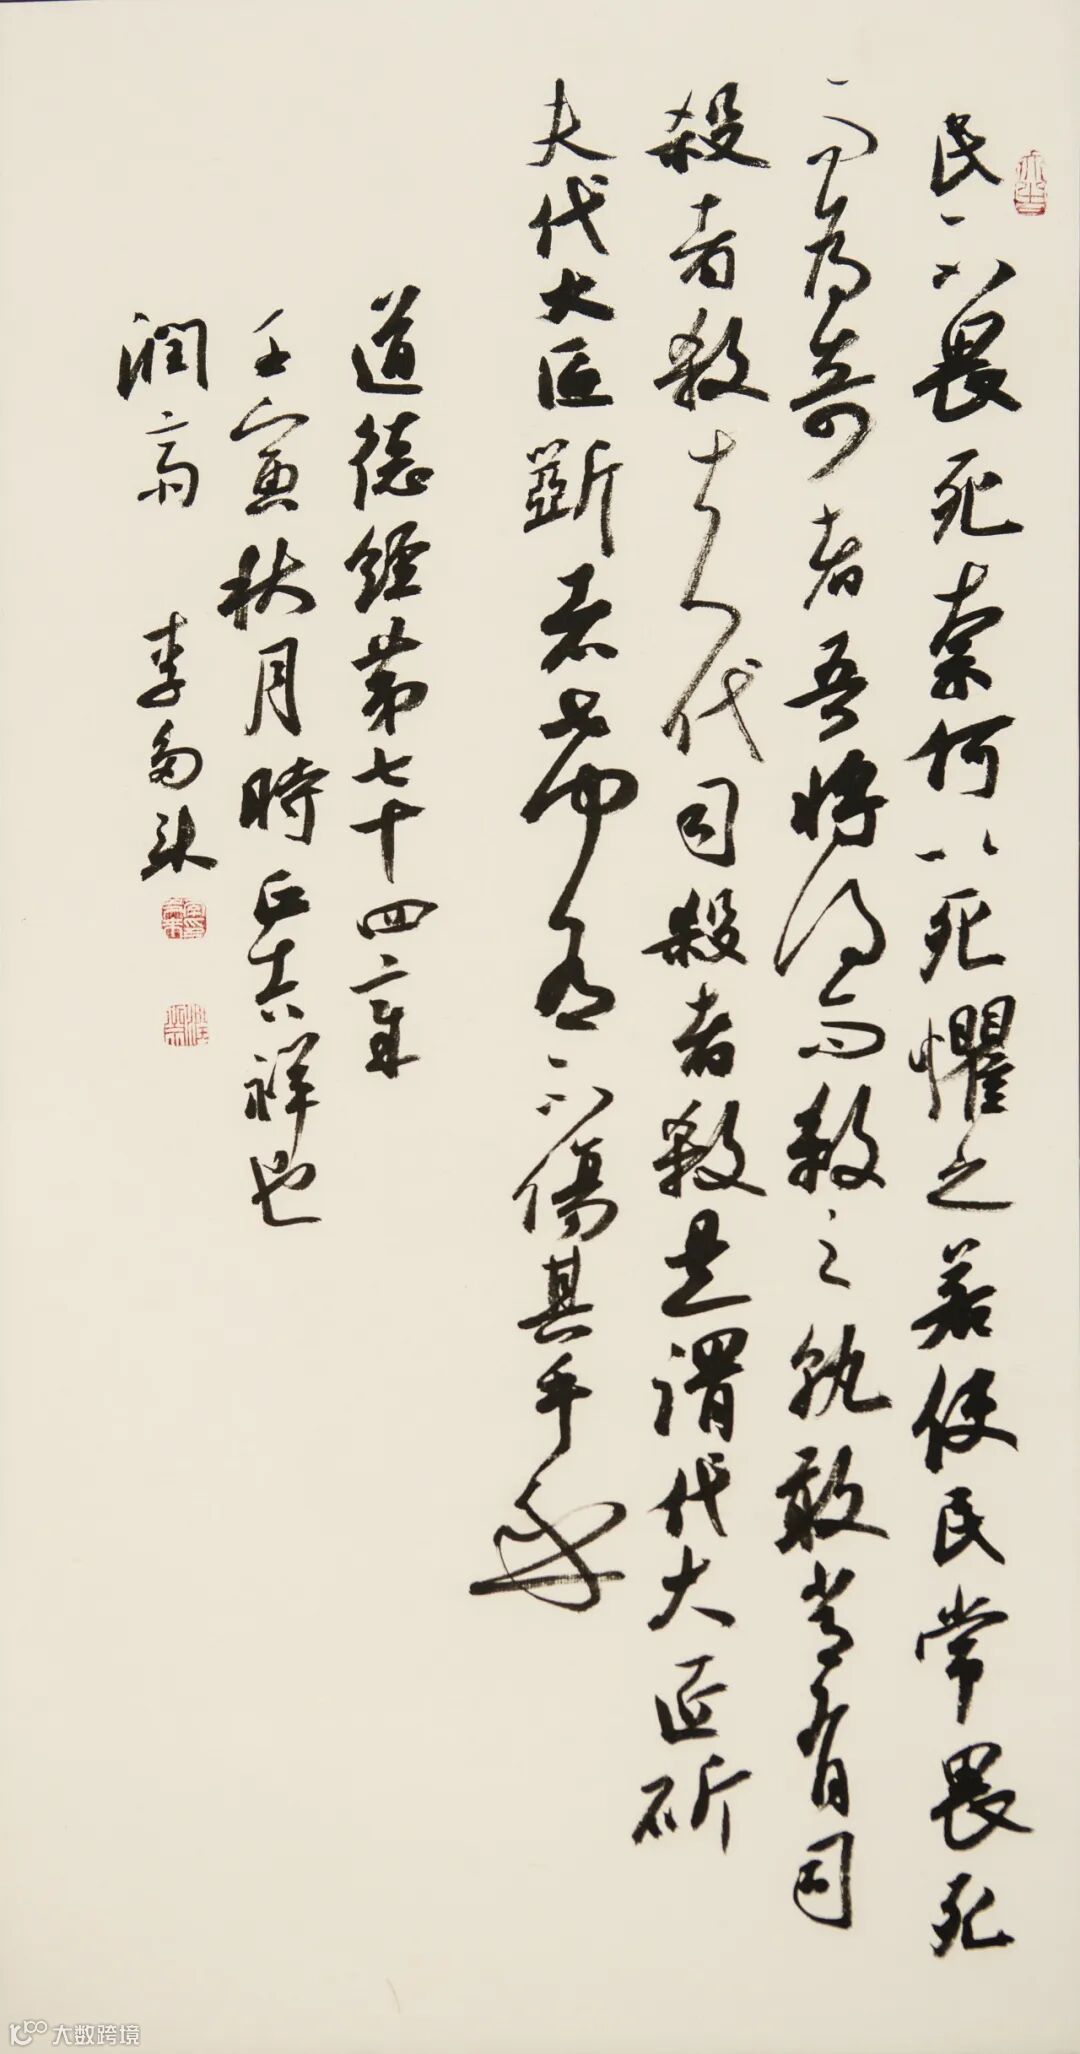 民不畏死柰何以死懼之若使民常畏死
而為奇者吾將得而殺之孰敢常有司
殺者殺夫代司殺者殺是謂代大匠斫
夫代大匠斲者希有不傷其手矣
道德經第七十四章
壬寅秋月時正吉祥也
潤齋 李
大数跨境